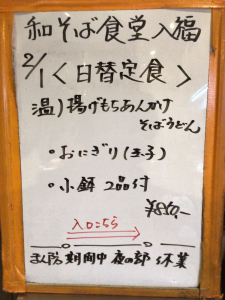 和そば食堂入福
2/1〈日替定食〉
温)揚げもちあんかけ
そばうどん
・おにぎり(玉子)
・小鉢 2品付
¥850-
入口こちら
まん防期間中 夜の部 休業